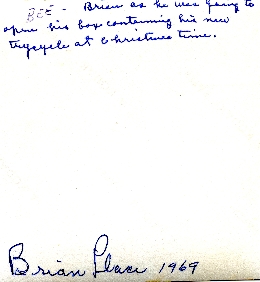 BEE - Brian as he was going to
open his box containing his new
trycycle at Christmas time.
Brian Place 1969